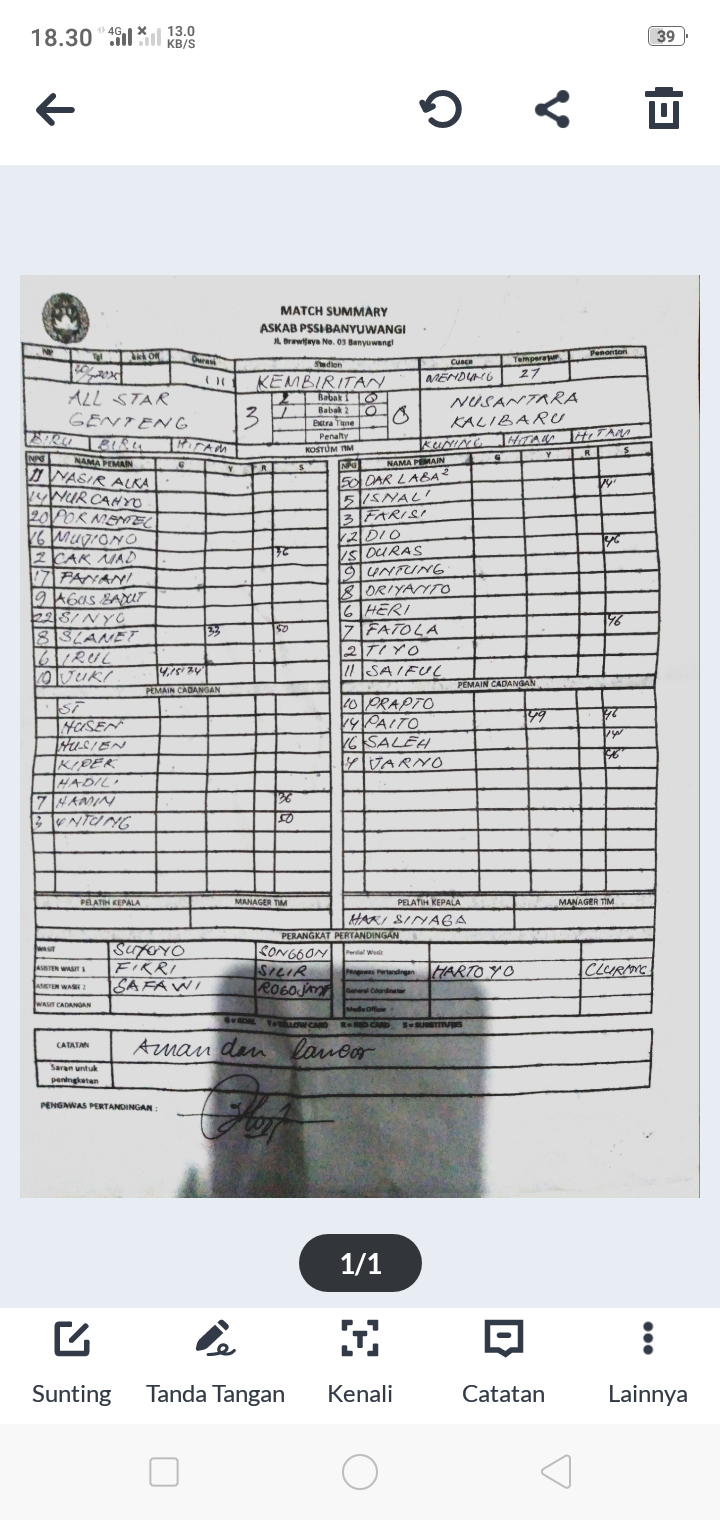 18.30 4G 13.0 KB/S 39
MATCH SUMMARY
ASKAB PSSI BANYUWANGI
Jl. Brawijaya No. 03 Banyuwangi
NP Tgl Kick Off Durasi Stadion Cuaca Temperatur Penonton
KEMBIRITAN MENDUNG 27
ALL STAR GENTENG 3 2 Babak 1 0 0 NUSANTARA KALIBARU
1 Babak 2 0
Extra Time
Penalty
BIRU BIRU HITAM KOSTUM TIM KUNING HITAM HITAM
NPG NAMA PEMAIN G Y R S NPG NAMA PEMAIN G Y R S
11 NASIR ALKA 50 DAR LABA² 14'
14 NUR CAHYO 5 ISNAL'
20 POR MENTEL 3 FARISI
16 MUJIONO 12 DIO 46
2 CAK MAD 36 15 DURAS
17 PANANI 9 UNTUNG
9 AGUS BADUT 8 DRIYANTO
22 SINYO 6 HERI
8 SLAMET 33 50 7 FATOLA 46
6 IRUL 2 TIYO
10 JUKI 11 SAIFUL
PEMAIN CADANGAN PEMAIN CADANGAN
ST 10 PRAPTO
HUSEN 14 PAITO 49 46
HUSIEN 16 SALEH 14'
KIPER 4 JARNO 46'
HADILI
7 HAMIM 36
3 UNTUNG 50
PELATIH KEPALA MANAGER TIM PELATIH KEPALA MANAGER TIM
HARI SINAGA
PERANGKAT PERTANDINGAN
WASIT SUYOYO SONGGON
ASISTEN WASIT 1 FIKRI SILIR Pengawas Pertandingan HARTOYO CLURING
ASISTEN WASIT 2 SAFAWI ROGOJAMPI General Coordinator
WASIT CADANGAN Media Officer
G = GOAL Y = YELLOW CARD R = RED CARD S = SUBSTITUTES
CATATAN Aman dan lancar
Saran untuk
peningkatan
PENGAWAS PERTANDINGAN :
1/1
Sunting Tanda Tangan Kenali Catatan Lainnya